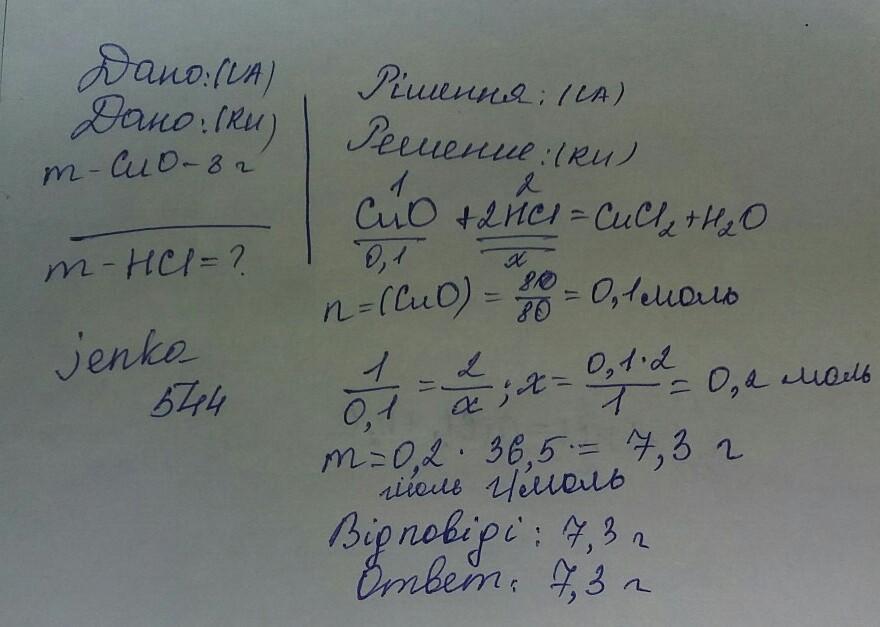 Дано: (UA)
Дано: (RU)
m - CuO - 8 г
m - HCl = ?
jenka
544
Рішення: (UA)
Решение: (RU)
1 2
CuO + 2HCl = CuCl₂ + H₂O
0,1 x
n = (CuO) = 8/80 = 0,1 моль
1/0,1 = 2/x; x = 0,1·2/1 = 0,2 моль
m = 0,2 · 36,5 · = 7,3 г
моль г/моль
Відповіді: 7,3 г
Ответ: 7,3 г